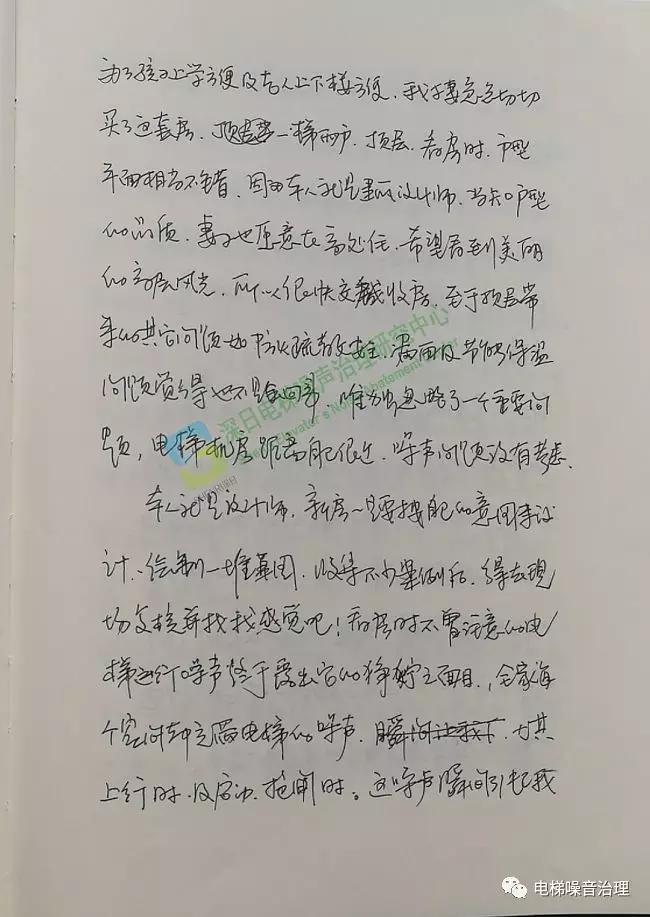 为了孩子上学方便及老人上下楼方便，我与妻急急切切
买了这套房，一梯两户，顶层，看房时，户型
平面相当不错，因为本人就是画面设计师，当知户型
的品质，妻子也愿意在高处住，希望看到美丽
的高层风光，所以很快交钱收房，至于顶层带
来的其它问题如防火疏散安全，漏雨及节能保温
问题觉得也不是回事，唯独忽略了一个重要问
题，电梯机房距离自己很近，噪声问题没有考虑。
本人就是设计师，新房一定要按自己的意图来设
计，绘制一堆草图，收集不少案例后，得去现
场复核并找找感觉吧！看房时不曾注意的电
梯运行噪声终于露出它的狰狞之面目，全家每
个空间都充满电梯的噪声，瞬间让我下 尤其
上行时及启动、抱闸时。这噪声瞬间引起我
深日电梯噪声治理研究中心
Elevator's Noise Abatement Center
电梯噪音治理